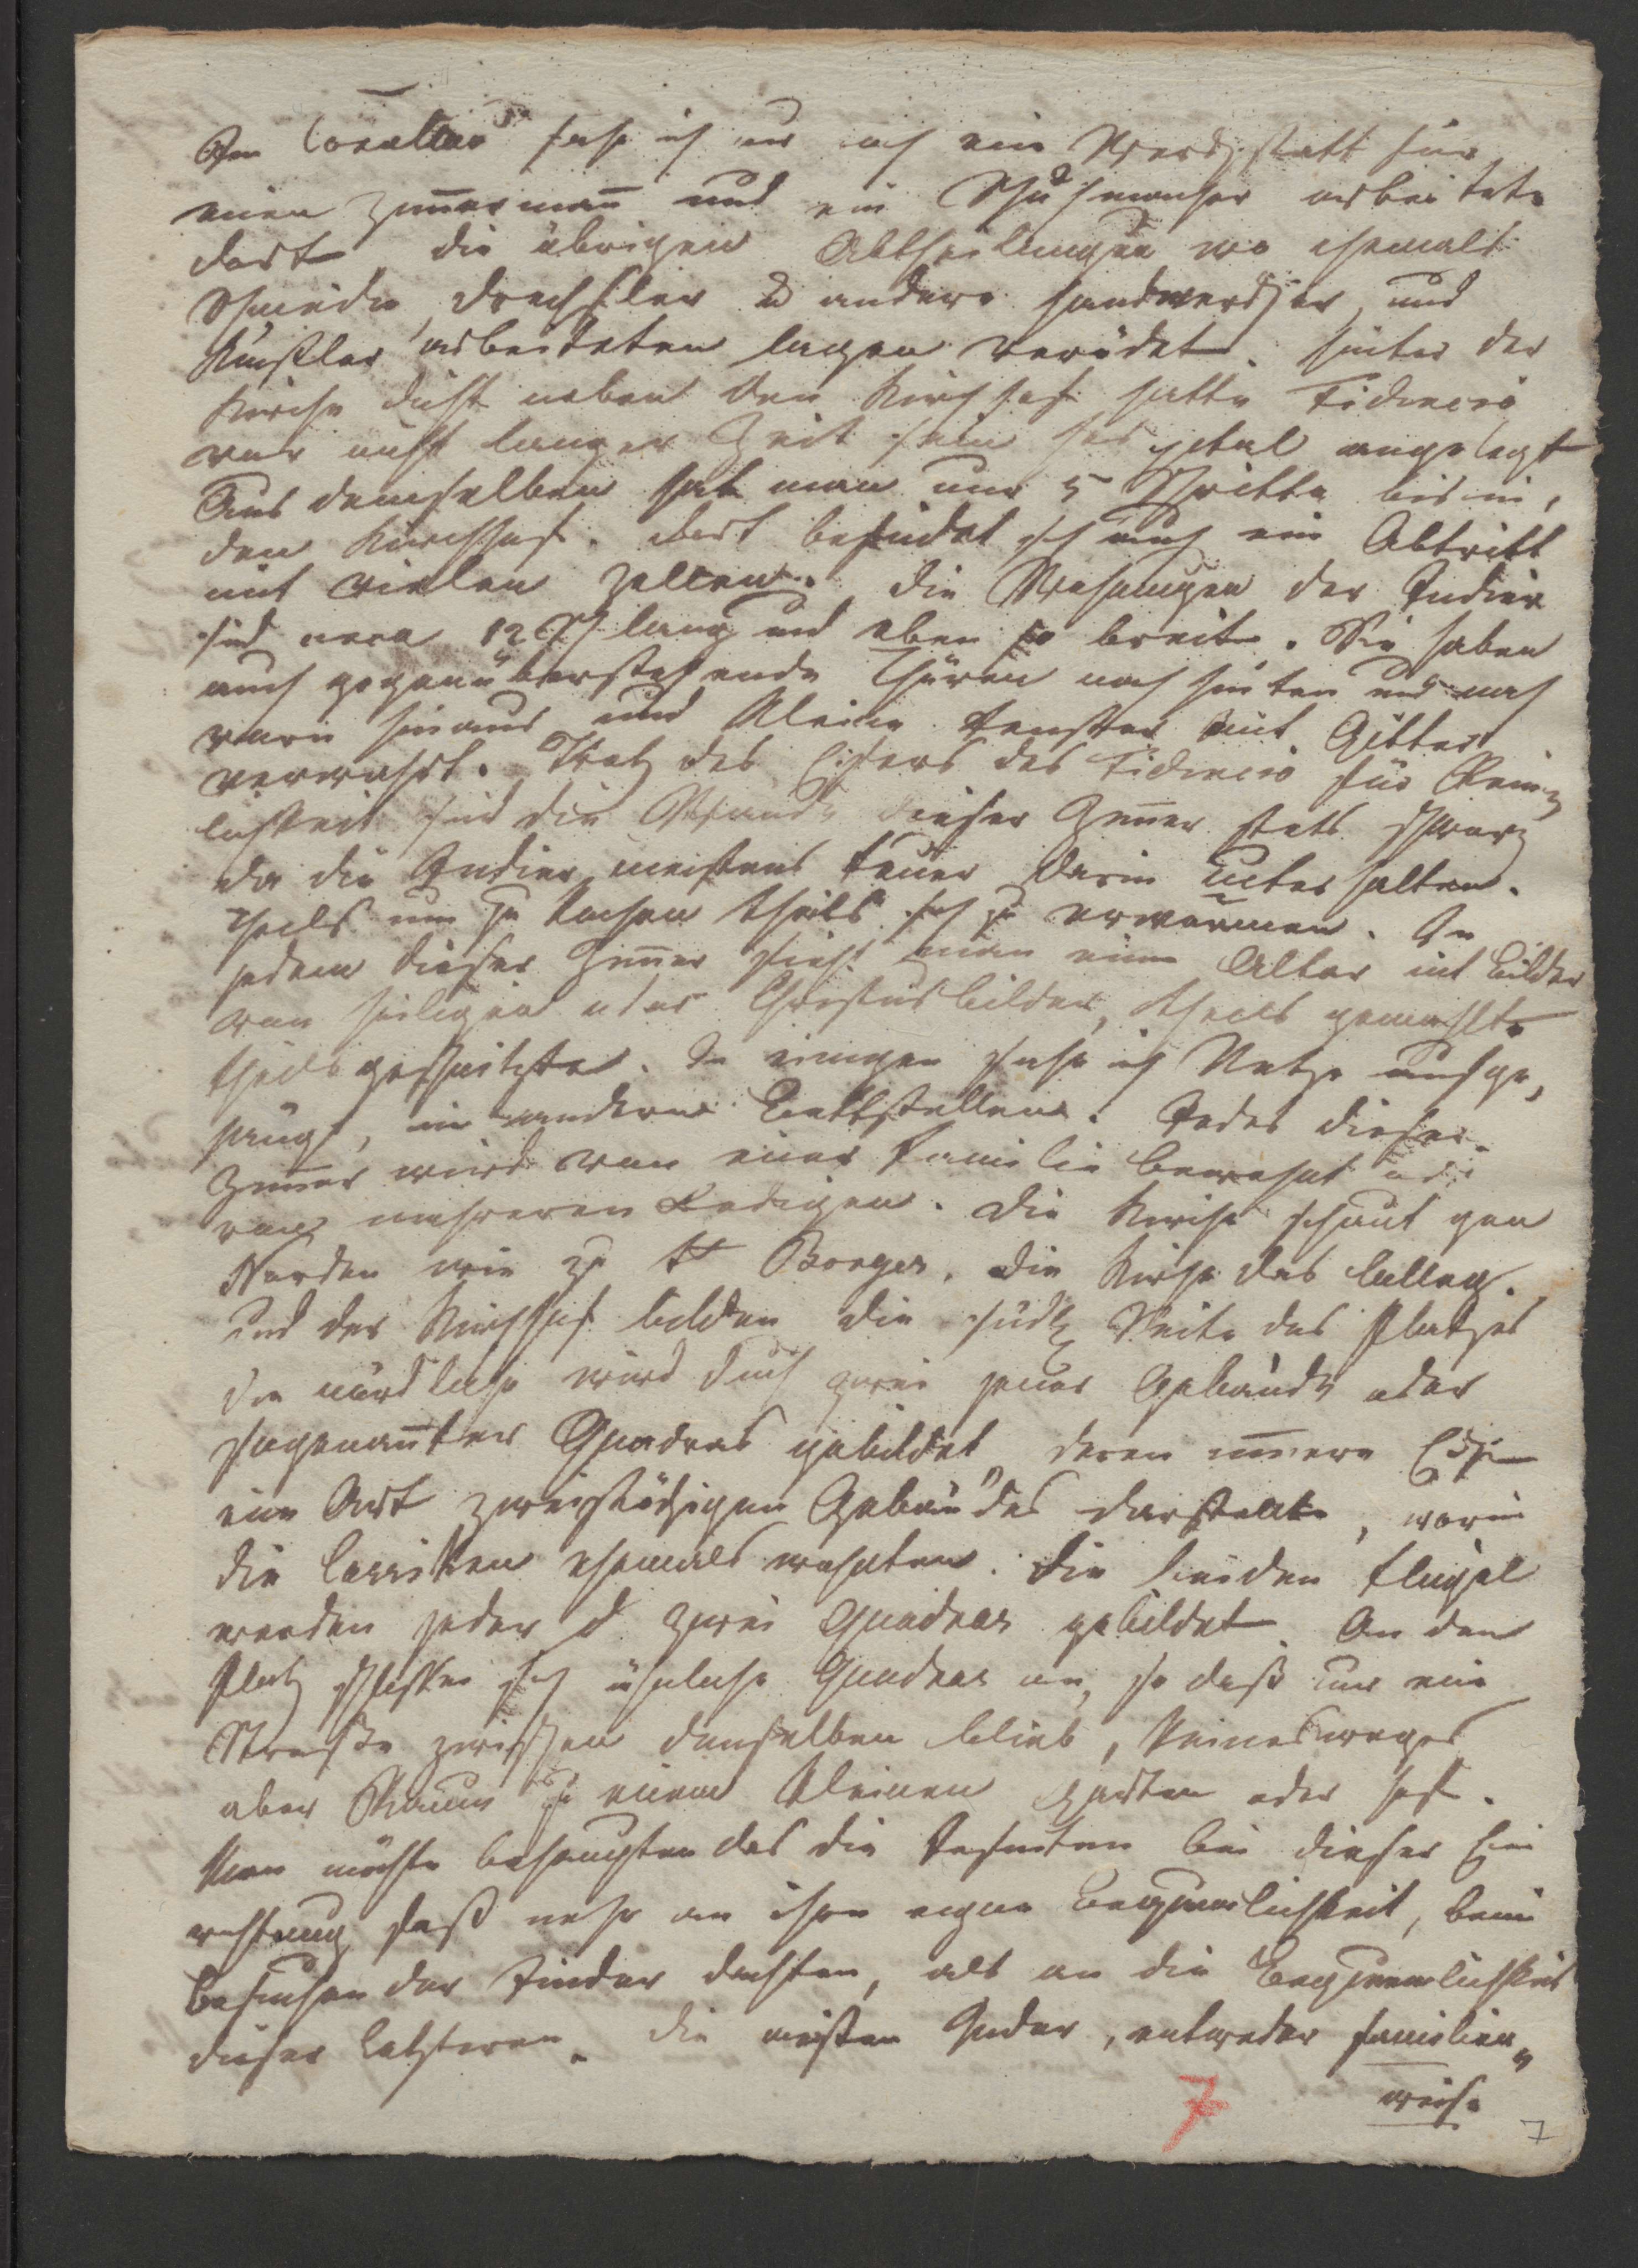 Im Corallao sahe ich nur noch eine Werkstatt für
einen Zim̄erman̄ und ein Schuhmacher arbeitete
dort die übrigen Abtheilungen wo ehemals
Schmiede Drechsler & andere Handwercker und
Künstler arbeiteten lagen verödet. Hinter der
Kirche dicht neben dem Kirchhof hatte Fidincio
vor nicht langer Zeit sein Hospital angelegt
Aus demselben hat man nur 5 Schritte bis in
den Kirchhof. Dort befindet sich auch ein Abtritt
mit vielen Zellen. Die Wohnungen der Indier
sind 12 Sch lang und eben so breit. Sie haben
auch gegenüberstehende Thüren nach hinten und nach
vorn hinaus und kleine Fenster mit Gitter
verwahrt. Trotz des Eifers des Fidincio für Rein-
lichkeit sind die Wände dieser Zim̄er stets schwarz
da die Indier meistens Feuer darin unterhalten.
Theils um zu kochen theils sich zu erwärmen. In
jedem dieser Zim̄er sieht man einen Altar mit Bilder
von Heiligen oder Christusbilder, theils gemahlte
theils geschnitzte. In einigen sahe ich Netze aufge-
hängt, in andern Bettstellen. Jedes dieser
Zim̄er wird von einer Familie bewohnt oder
von mehreren Ledigen. Die Kirche schaut gen
Norden wie zu St Borges. Die Kirche das Colleg.
und der Kirchhof bilden die südl Seite des Platzes
die nördliche wird durch zwei jener Gebäude oder
sogenan̄ter Quadras gebildet deren in̄ere Ecke
eine Art zweistöckigen Gebäudes darstellte, worin
die ehemals wohnten. Die beiden Flügel
werden jeder d zwei Quadras gebildet. An den
Platz schließen sich ähnliche Quadras an, so daß nur eine
Straße zwischen denselben blieb, keineswegs
aber Raum zu einem kleinen Garten oder Hof.
Man möchte behaupten das die Jesuiten bei dieser Ein
richtung fast mehr an ihre eigene Bequemlichkeit, beim
Besuchen der Indier dachten, als an die Bequemlichkeit
dieser letzteren. Die meisten Indier, entweder familien-
weise
7
7